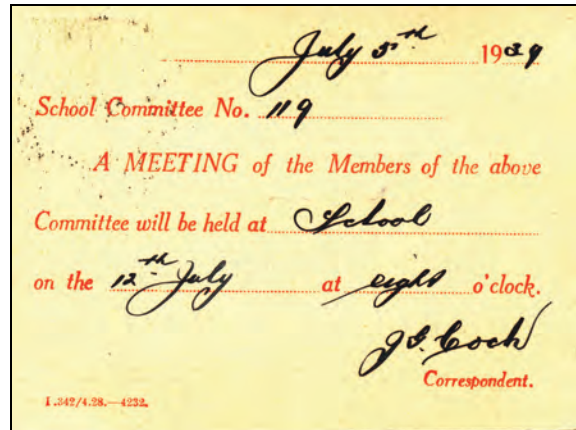 July 5th 1939
School Committee No. 119
A MEETING of the Members of the above
Committee will be held at School
on the 12th July at eight o'clock.
J G. Coch
Correspondent.
I.342/4.28.—4232.